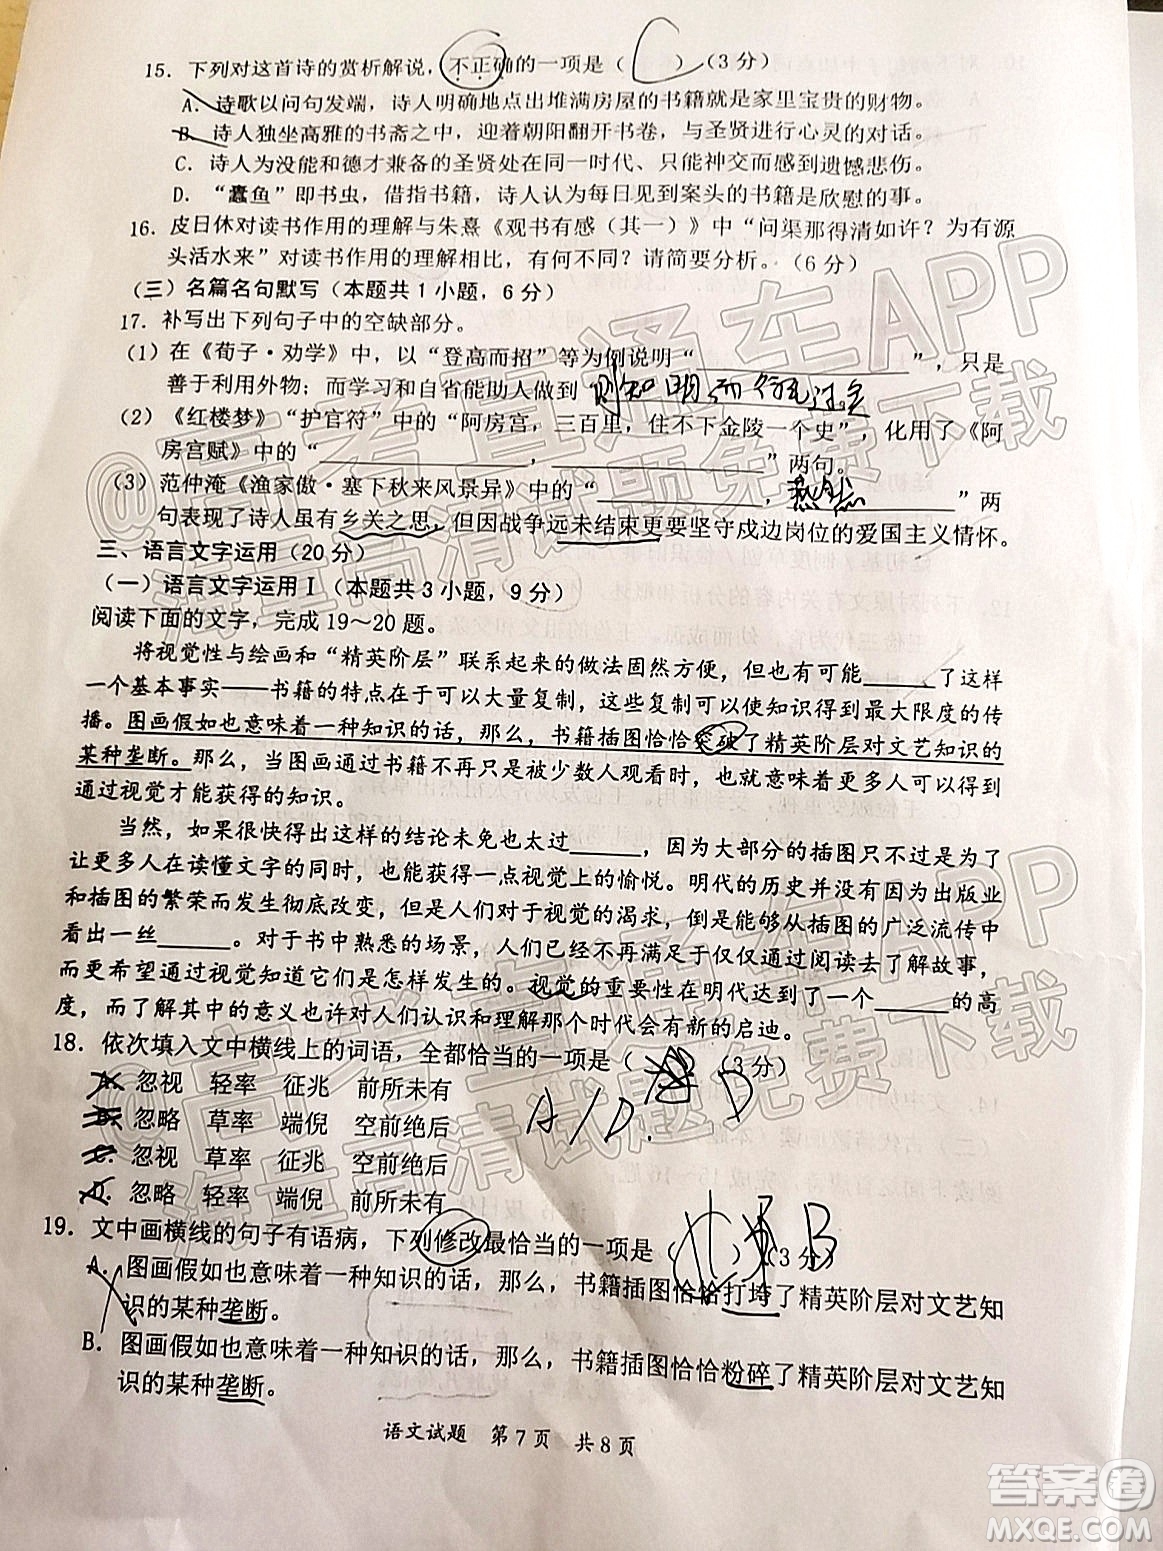 15. 下列对这首诗的赏析解说,不正确的一项是( C )(3分)
A. 诗歌以问句发端,诗人明确地点出堆满房屋的书籍就是家里宝贵的财物。
B. 诗人独坐高雅的书斋之中,迎着朝阳翻开书卷,与圣贤进行心灵的对话。
C. 诗人为没能和德才兼备的圣贤处在同一时代、只能神交而感到遗憾悲伤。
D. “蠹鱼”即书虫,借指书籍,诗人认为每日见到案头的书籍是欣慰的事。
16. 皮日休对读书作用的理解与朱熹《观书有感(其一)》中“问渠那得清如许?为有源
头活水来”对读书作用的理解相比,有何不同?请简要分析。(6分)
(三)名篇名句默写(本题共1小题,6分)
17. 补写出下列句子中的空缺部分。
(1)在《荀子·劝学》中,以“登高而招”等为例说明“________”,只是
善于利用外物;而学习和自省能助人做到“则知明而行无过矣
(2)《红楼梦》“护官符”中的“阿房宫,三百里,住不下金陵一个史”,化用了《阿
房宫赋》中的“________,________”两句。
(3)范仲淹《渔家傲·塞下秋来风景异》中的“________,燕然________”两
句表现了诗人虽有乡关之思,但因战争远未结束更要坚守戍边岗位的爱国主义情怀。
三、语言文字运用(20分)
(一)语言文字运用Ⅰ(本题共3小题,9分)
阅读下面的文字,完成19~20题。
将视觉性与绘画和“精英阶层”联系起来的做法固然方便,但也有可能______了这样
一个基本事实——书籍的特点在于可以大量复制,这些复制可以使知识得到最大限度的传
播。图画假如也意味着一种知识的话,那么,书籍插图恰恰突破了精英阶层对文艺知识的
某种垄断。那么,当图画通过书籍不再只是被少数人观看时,也就意味着更多人可以得到
通过视觉才能获得的知识。
当然,如果很快得出这样的结论未免也太过______,因为大部分的插图只不过是为了
让更多人在读懂文字的同时,也能获得一点视觉上的愉悦。明代的历史并没有因为出版业
和插图的繁荣而发生彻底改变,但是人们对于视觉的渴求,倒是可以从插图的广泛流传中
看出一丝______。对于书中熟悉的场景,人们已经不再满足于仅仅通过阅读来了解故事,
而更希望通过视觉知道它们是怎样发生的。视觉的重要性在明代达到了一个______的高
度,而了解其中的意义也许对人们认识和理解那个时代会有新的启迪。
18. 依次填入文中横线上的词语,全都恰当的一项是( )(3分)
A. 忽视 轻率 征兆 前所未有
B. 忽略 草率 端倪 空前绝后
C. 忽视 草率 征兆 空前绝后
D. 忽略 轻率 端倪 前所未有
A/D. D
19. 文中画横线的句子有语病,下列修改最恰当的一项是( )(3分) B
A. 图画假如也意味着一种知识的话,那么,书籍插图恰恰打垮了精英阶层对文艺知
识的某种垄断。
B. 图画假如也意味着一种知识的话,那么,书籍插图恰恰粉碎了精英阶层对文艺知
识的某种垄断。
语文试题 第7页 共8页
@高考直通车APP
海量高清试题免费下载
@高考直通车APP
海量高清试题免费下载
答案圈
MXQE.COM